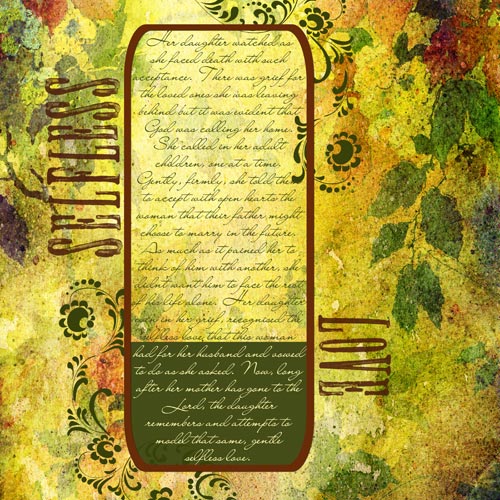 SELFLESS
Her daughter watched as
she faced death with such
acceptance. There was grief for
the loved ones she was leaving
behind but it was evident that
God was calling her home.
She called in her adult
children, one at a time
Gently, firmly, she told them
to accept with open hearts the
woman that their father might
choose to marry in the future.
As much as it pained her to
think of him with another, she
didn't want him to face the rest
of his life alone. Her daughter
even in her grief, recognised the
selfless love that this woman
had for her husband and vowed
to do as she asked. Now, long
after her mother has gone to the
Lord, the daughter
remembers and attempts to
model that same, gentle
selfless love.
LOVE